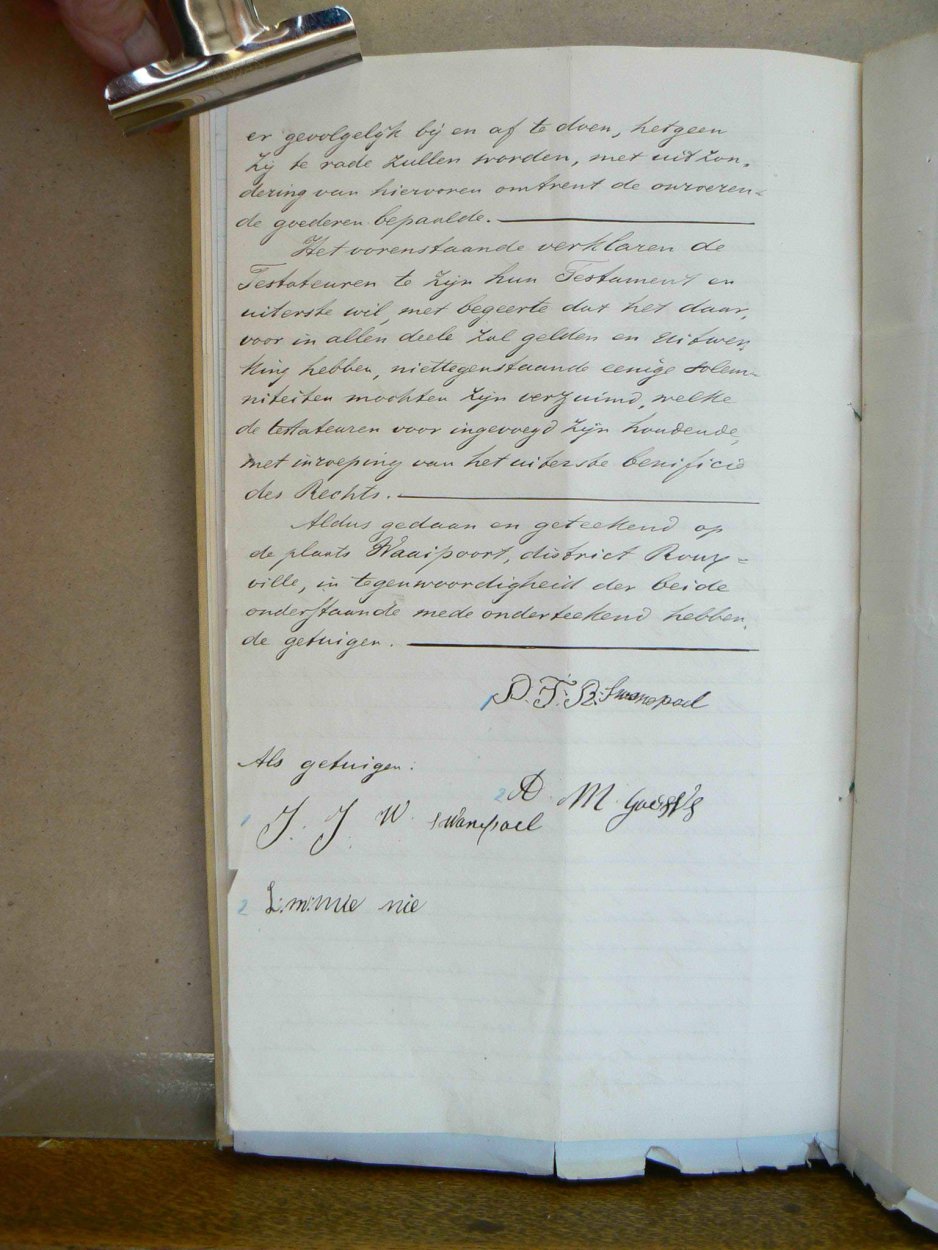 er gevolgelijk bij en af te doen, hetgeen
zij te rade zullen worden, met uitzon,
dering van hiervoren omtrent de onroeren=
de goederen bepaalde.
Het vorenstaande verklaren de
Testateuren te zijn hun Testament en
uiterste wil, met begeerte dat het daar,
voor in allen deele zal gelden en uitwer,
king hebben, niettegenstaande eenige solem=
niteiten mochten zijn verzuimd, welke
de testateuren voor ingevoegd zijn houdende,
met inroeping van het uiterste benificie
des Rechts.
Aldus gedaan en geteekend op
de plaats Waaipoort, district Roux=
ville, in tegenwoordigheid der beide
onderstaande mede onderteekend hebben,
de getuigen.
1 D. F. R. Swanepoel
Als getuigen:
2 A M
1 J. J W. swanepoel
2 nie